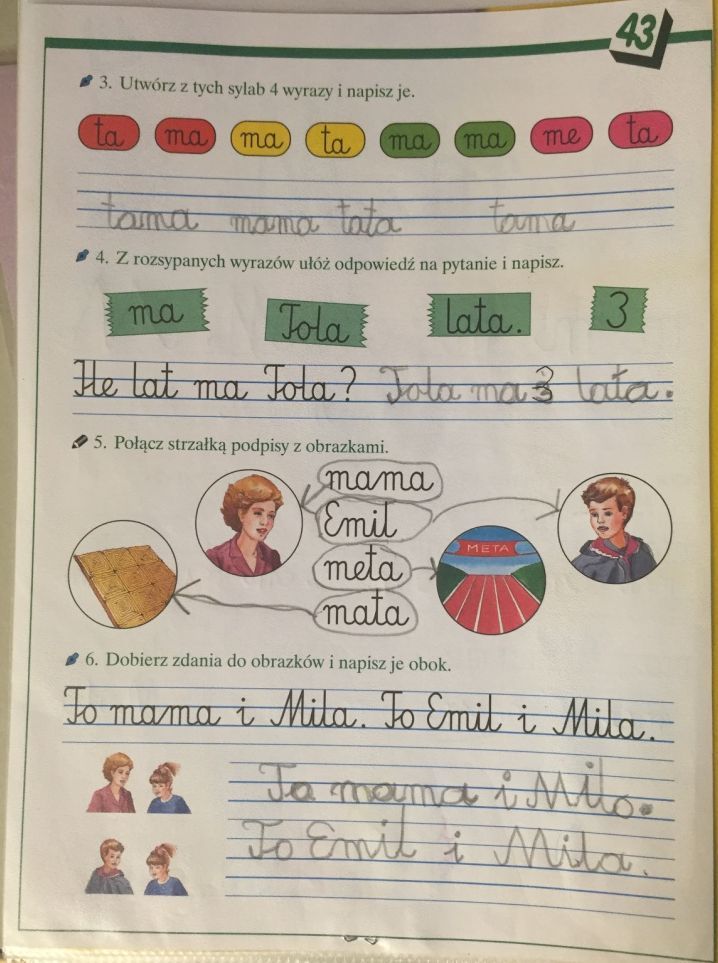 43
3. Utwórz z tych sylab 4 wyrazy i napisz je.
ta ma ma ta ma ma me ta
tama mama tata tama
4. Z rozsypanych wyrazów ułóż odpowiedź na pytanie i napisz.
ma Tola lata. 3
Ile lat ma Tola? Tola ma 3 lata.
5. Połącz strzałką podpisy z obrazkami.
mama
Emil
META
meta
mata
6. Dobierz zdania do obrazków i napisz je obok.
To mama i Mila. To Emil i Mila.
Ta mama i Milo.
To Emil i Mila.